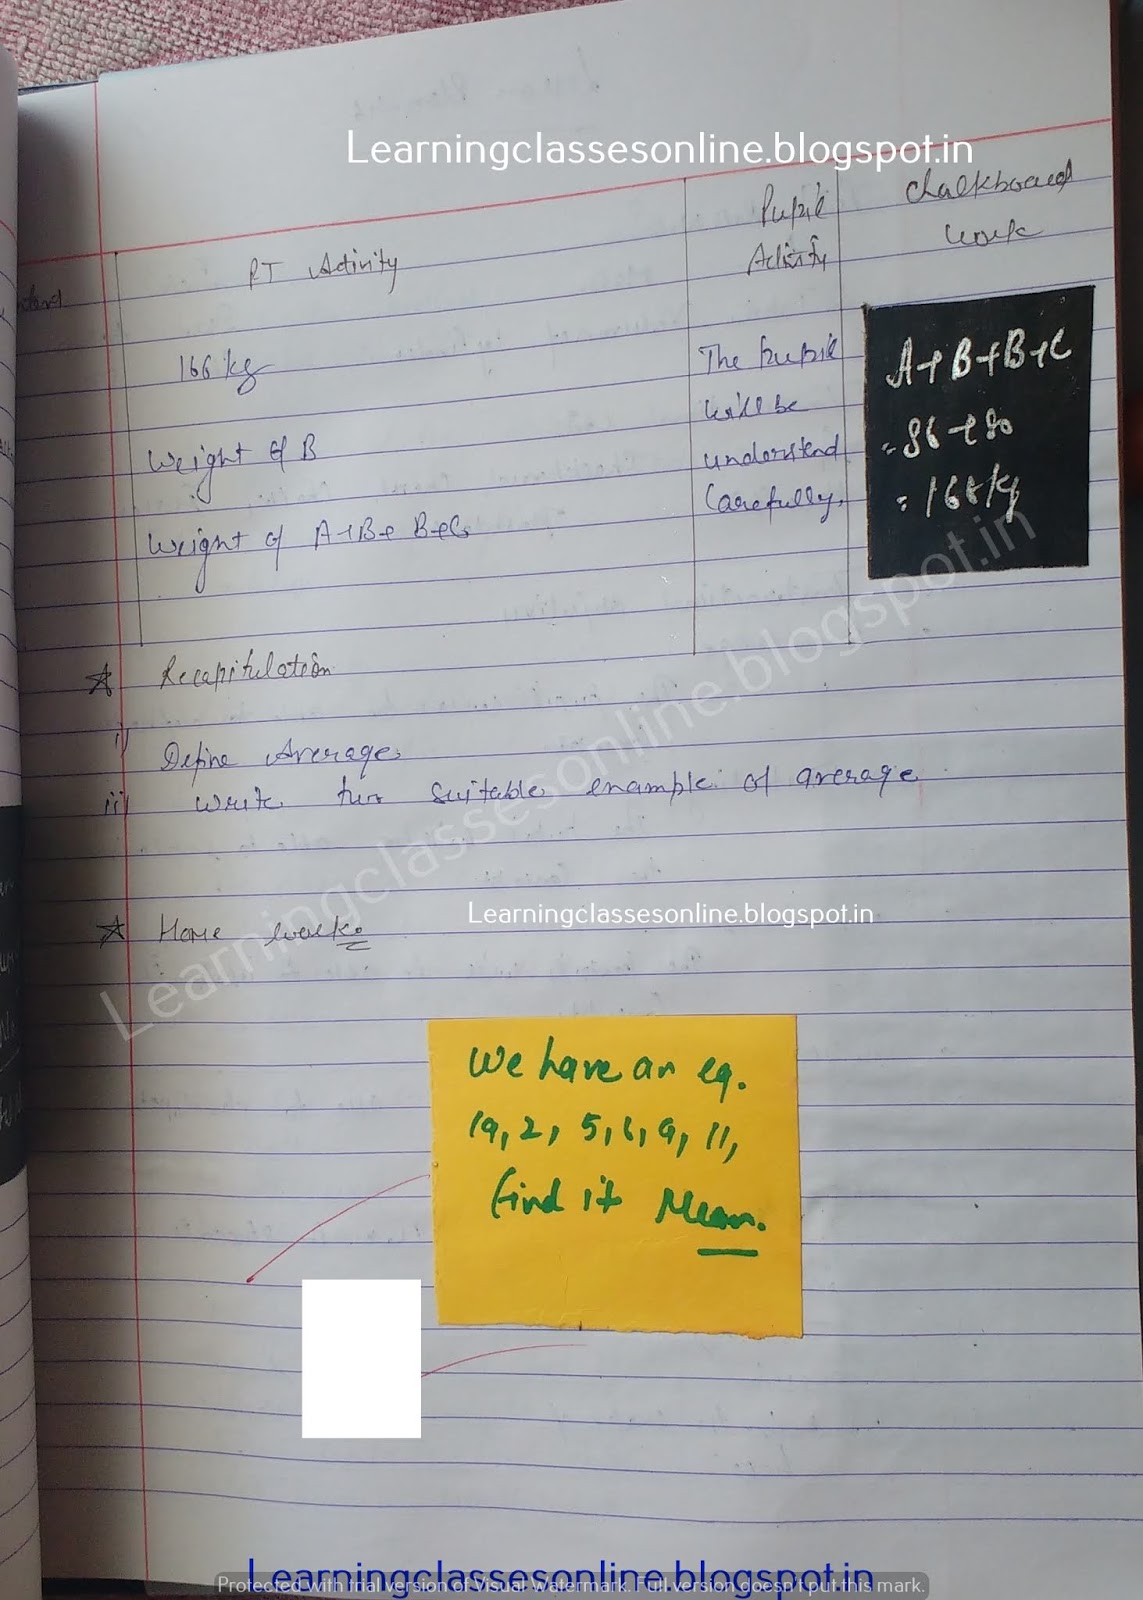 Learningclassesonline.blogspot.in
PT Activity
Pupil
Activity
Chalkboard
work
166 kg
Weight of B
Weight of A+B+ B+C
The pupil
will be
understand
Carefully.
A+B+B+C
= 86+80
= 166 kg
Recapitulation
i) Define Average.
ii) write two suitable example of average
Learningclassesonline.blogspot.in
Home work.
Learningclassesonline.blogspot.in
We have an eq.
19, 2, 5, 6, 9, 11,
find it Mean.
Learningclassesonline.blogspot.in
Protected with trial version of Visual Watermark. Full version doesn't put this mark.